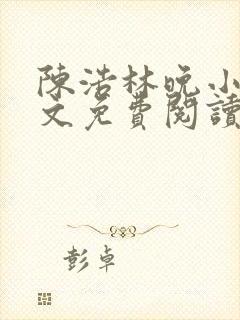 陳浩林晚小
文免費閱讀
彭卓